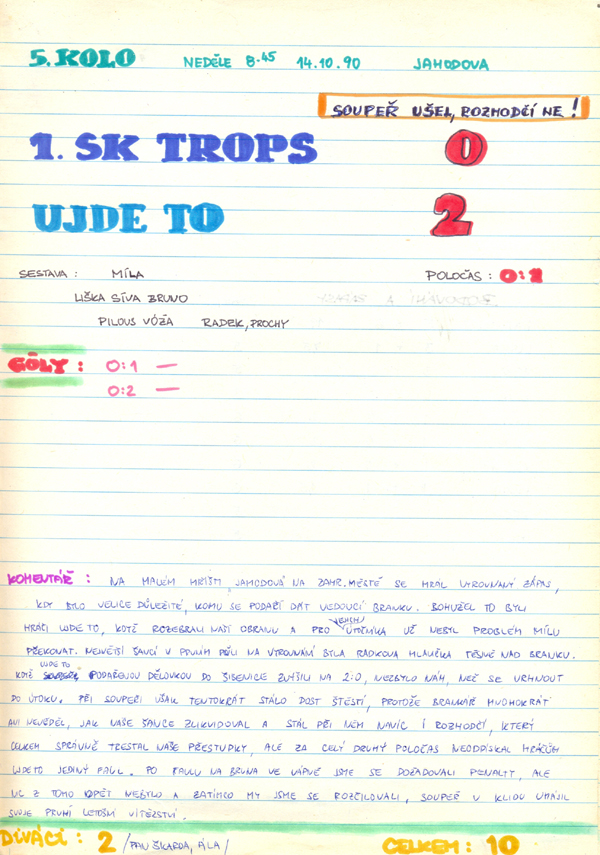 5. KOLO NEDĚLE 8.45 14.10.90 JAHODOVA
SOUPEŘ UŠEL, ROZHODČÍ NE!
1. SK TROPS 0
UJDE TO 2
SESTAVA: MÍLA POLOČAS: 0:1
LIŠKA SÍVA BRUNO
PILOUS VÓŽA RADEK, PROCHY
GÓLY: 0:1 —
0:2 —
KOMENTÁŘ: NA MALÉM HŘIŠTI JAHODOVÁ NA ZAHR. MĚSTĚ SE HRÁL VYROVNANÝ ZÁPAS,
KDY BYLO VELICE DŮLEŽITÉ, KOMU SE PODAŘÍ DÁT VEDOUCÍ BRANKU. BOHUŽEL TO BYLI
HRÁČI UJDE TO, KTEŘ ROZEBRALI NAŠÍ OBRANU A PRO ÚTOČNÍKA UŽ NEBYL PROBLÉM MÍLU
PŘEKONAT. NEJVĚTŠÍ ŠANCÍ V PRVNÍM PŮLI NA VYROVNÁNÍ BYLA RADKOVA HLAVIČKA TĚSNĚ NAD BRANKU.
KDYŽ UJDE TO PODAŘENOU DĚLOVKOU DO ŠIBENICE ZVÝŠILI NA 2:0, NEZBYLO NÁM, NEŽ SE VRHNOUT
DO ÚTOKU. PŘI SOUPEŘI VŠAK TENTOKRÁT STÁLO DOST ŠTĚSTÍ, PROTOŽE BRANKÁŘ MNOHOKRÁT
ANI NEVĚDĚL, JAK NAŠE ŠANCE ZLIKVIDOVAL A STÁL PŘI NĚM NAVÍC I ROZHODČÍ, KTERÝ
CELKEM SPRÁVNĚ TRESTAL NAŠE PŘESTUPKY, ALE ZA CELÝ DRUHÝ POLOČAS NEODPÍSKAL HRÁČŮM
UJDE TO JEDINÝ FAUL. PO FAULU NA BRUNA VE VÁPNĚ JSME SE DOŽADOVALI PENALTY, ALE
NIC Z TOHO OPĚT NEBYLO A ZATÍMCO MY JSME SE ROZČILOVALI, SOUPEŘ V KLIDU UHÁJIL
SVOJE PRVNÍ LETOŠNÍ VÍTĚZSTVÍ.
DIVÁCI: 2 /PAN ŠKARDA, ÁLA/ CELKEM: 10